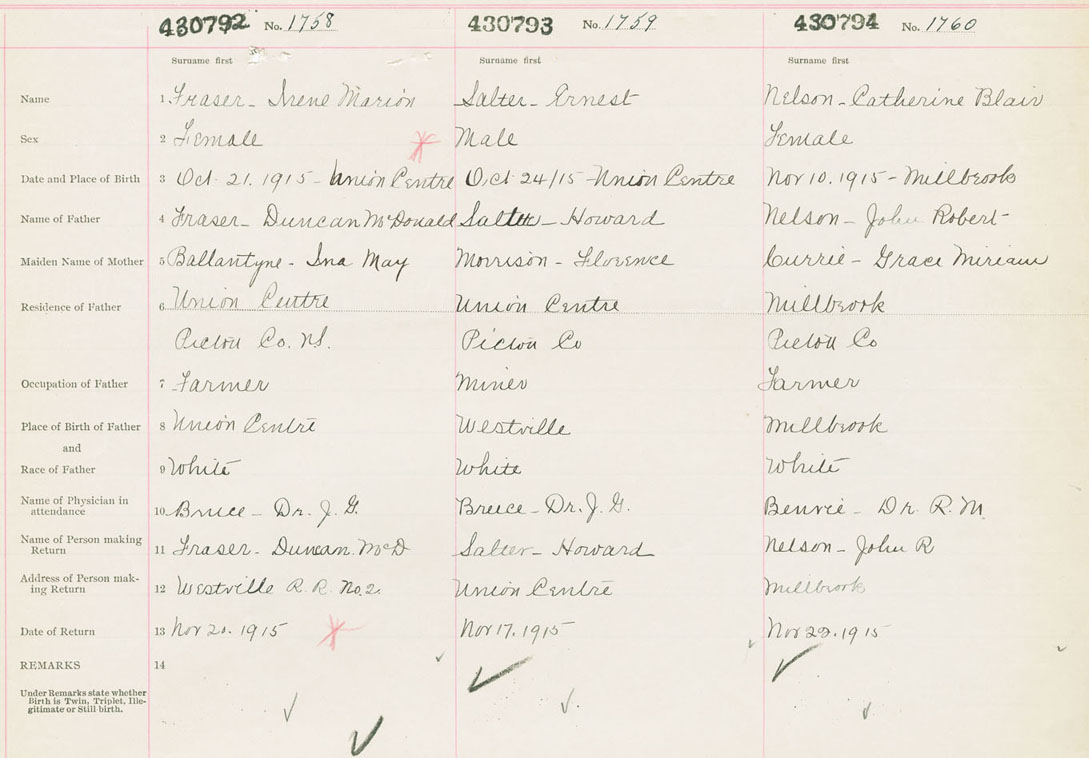 430792 No. 1758 430793 No. 1759 430794 No. 1760
Surname first Surname first Surname first
Name 1 Fraser - Irene Marion Salter - Ernest Nelson - Catherine Blair
Sex 2 Female Male Female
Date and Place of Birth 3 Oct. 21. 1915 - Union Centre Oct 24/15 - Union Centre Nov 10. 1915 - Millbrook
Name of Father 4 Fraser - Duncan McDonald Salter - Howard Nelson - John Robert
Maiden Name of Mother 5 Ballantyne - Ina May Morrison - Florence Currie - Grace Miriam
Residence of Father 6 Union Centre Union Centre Millbrook
Pictou Co. N.S. Pictou Co Pictou Co
Occupation of Father 7 Farmer Miner Farmer
Place of Birth of Father 8 Union Centre Westville Millbrook
and
Race of Father 9 White White White
Name of Physician in
attendance 10 Bruce - Dr. J. G. Bruce - Dr. J. G. Benvie - Dr. R. M.
Name of Person making
Return 11 Fraser - Duncan McD Salter - Howard Nelson - John R
Address of Person mak-
ing Return 12 Westville R. R. No. 2. Union Centre Millbrook
Date of Return 13 Nov 20. 1915 Nov 17. 1915 Nov 22. 1915
REMARKS 14
Under Remarks state whether
Birth is Twin, Triplet, Ille-
gitimate or Still birth.